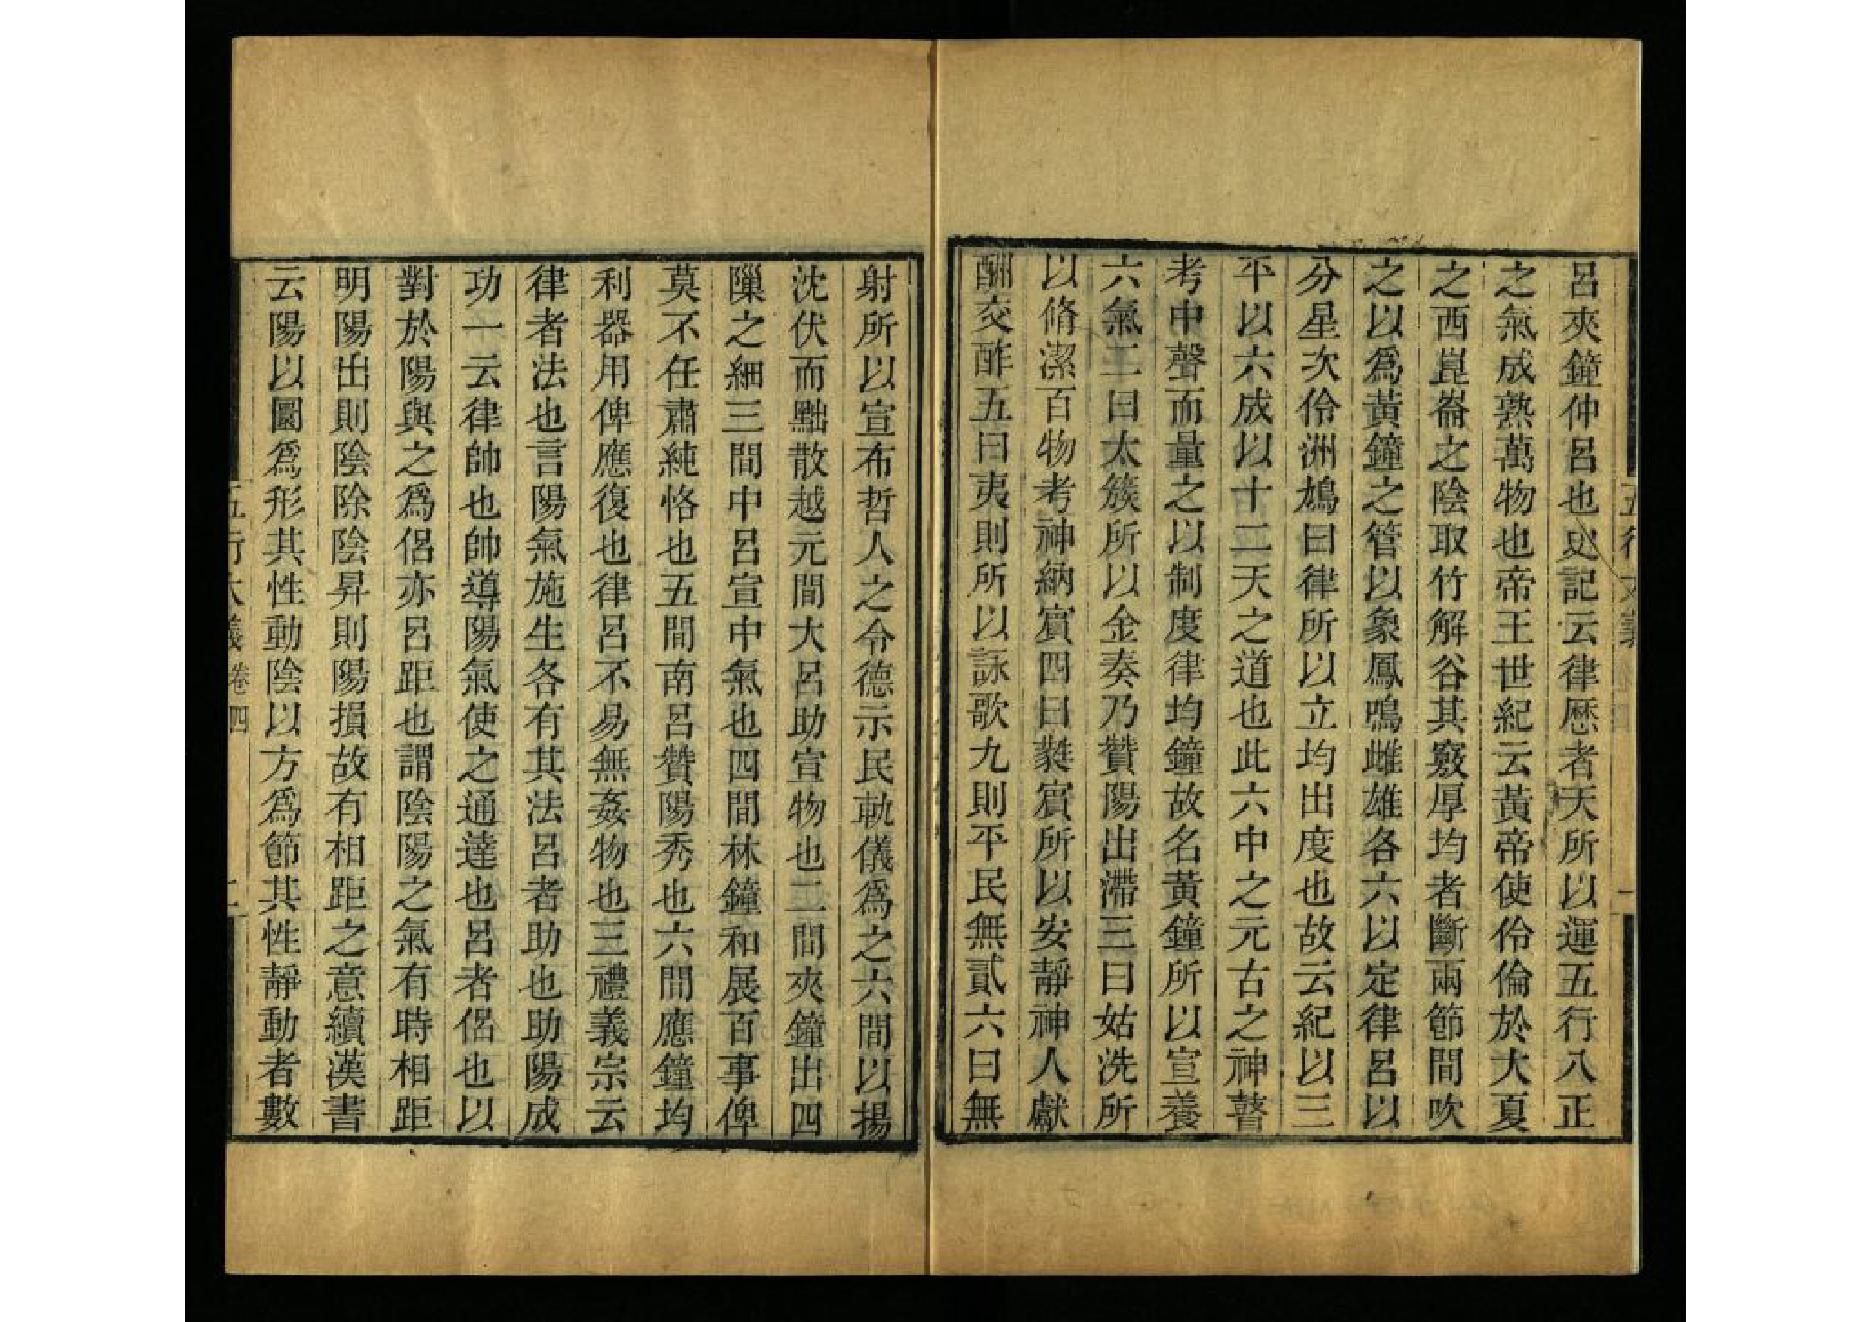 呂夾鐘仲呂也史記云律歷者天所以運五行八正
之氣成熟萬物也帝王世紀云黃帝使伶倫於大夏
之西崑崙之陰取竹解谷其竅厚均者斷兩節間吹
之以爲黃鐘之管以象鳳鳴雌雄各六以定律呂以
分星次伶洲鳩曰律所以立均出度也故云紀以三
平以六成以十二天之道也此六中之元古之神瞽
考中聲而量之以制度律均鐘故名黃鐘所以宣養
六氣二曰太簇所以金奏乃贊陽出滯三曰姑洗所
以脩潔百物考神納賓四曰蕤賓所以安靜神人獻
酬交酢五曰夷則所以詠歌九則平民無貳六曰無
射所以宣布哲人之令德示民軌儀爲之六間以揚
沈伏而黜散越元間大呂助宣物也二間夾鐘出四
隟之細三間中呂宣中氣也四間林鐘和展百事俾
莫不任肅純恪也五間南呂贊陽秀也六間應鐘均
利器用俾應復也律呂不易無姦物也三禮義宗云
律者法也言陽氣施生各有其法呂者助也助陽成
功一云律帥也帥導陽氣使之通達也呂者侶也以
對於陽與之爲侶亦呂距也謂陰陽之氣有時相距
明陽出則陰除陰昇則陽損故有相距之意續漢書
云陽以圓爲形其性動陰以方爲節其性靜動者數
五行大義 卷四 二